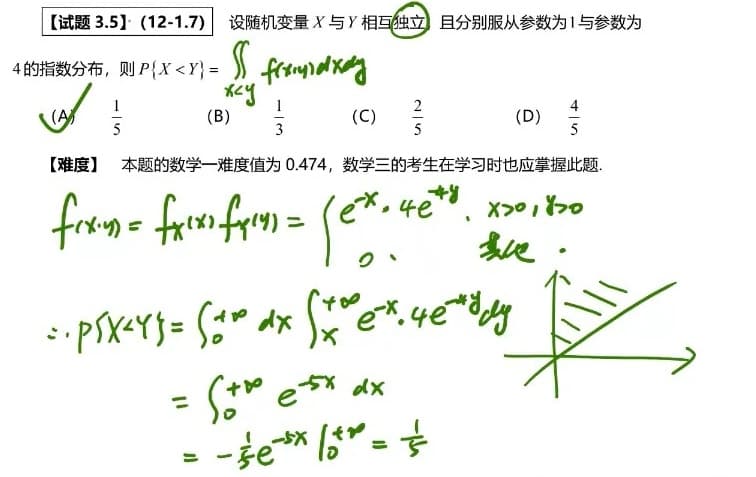 【试题 3.5】（12-1.7） 设随机变量 X 与 Y 相互独立，且分别服从参数为 1 与参数为
4 的指数分布，则 P{X < Y} = ∬_{x<y} f(x,y)dxdy
(A) 1/5 (B) 1/3 (C) 2/5 (D) 4/5
【难度】 本题的数学一难度值为 0.474，数学三的考生在学习时也应掌握此题.
f(x,y) = f_X(x) f_Y(y) = { e^{-x}·4e^{-4y}, x>0, y>0
0, 其他.
∴ P{X<Y} = ∫_0^{+∞} dx ∫_x^{+∞} e^{-x}·4e^{-4y} dy
= ∫_0^{+∞} e^{-5x} dx
= -1/5 e^{-5x} |_0^{+∞} = 1/5